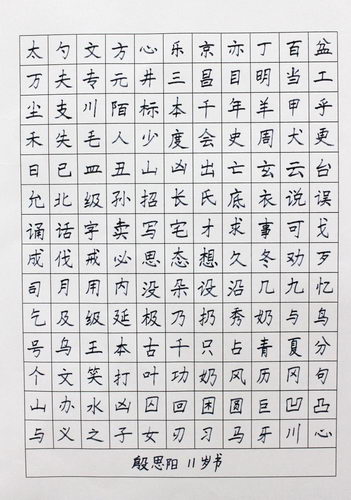 太勺文方心乐京亦丁百盆
万夫专元井三昌目明当工
尘支川陌标本千年羊甲乎
禾失毛人少度会史周犬更
日已皿丑山凶出亡玄云台
允北级孙招长氏底衣说误
诵话字卖写宅才求事可戈
成伐戒必思态想久冬劝歹
司月用内没朵设沿几九忆
乞及级延极乃扔秀奶与鸟
号乌王本古千只占青夏分
个文笑打叶功奶风历冈句
山办水凶囚回困圆巨凹凸
与义之子女刃习马牙川心
殷思阳 11岁书